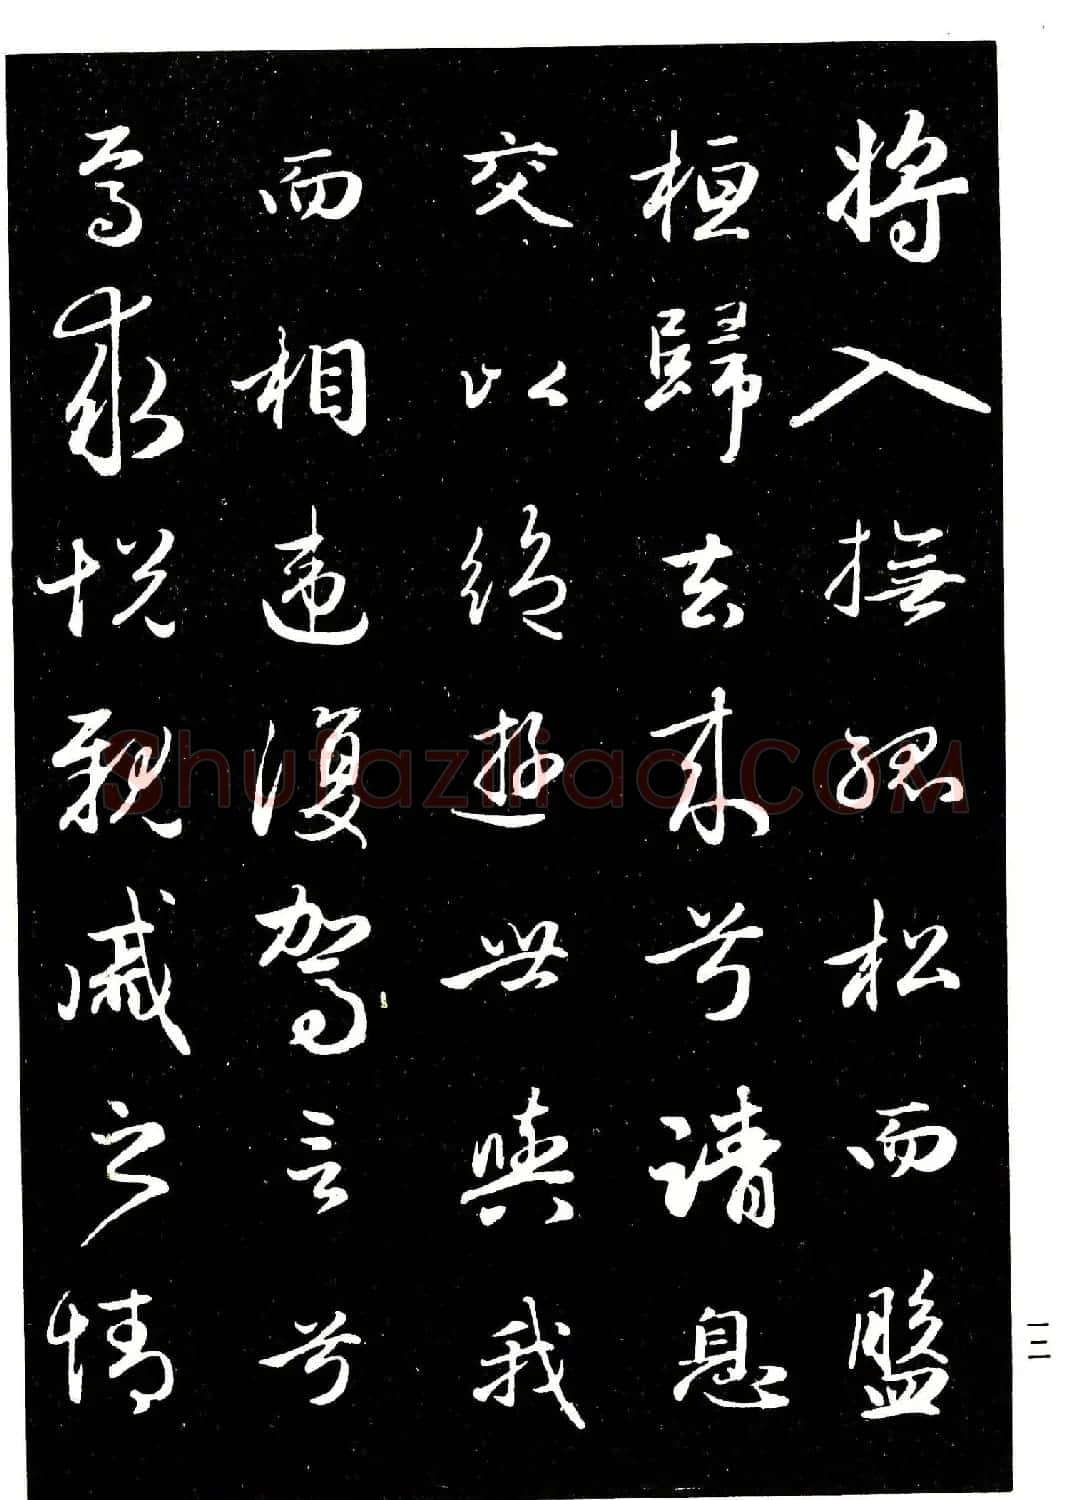 将入撫孤松而盤
桓歸去来兮請息
交以絶遊世與我
而相違復駕言兮
焉求悅親戚之情
一二
Shufaziliao.COM